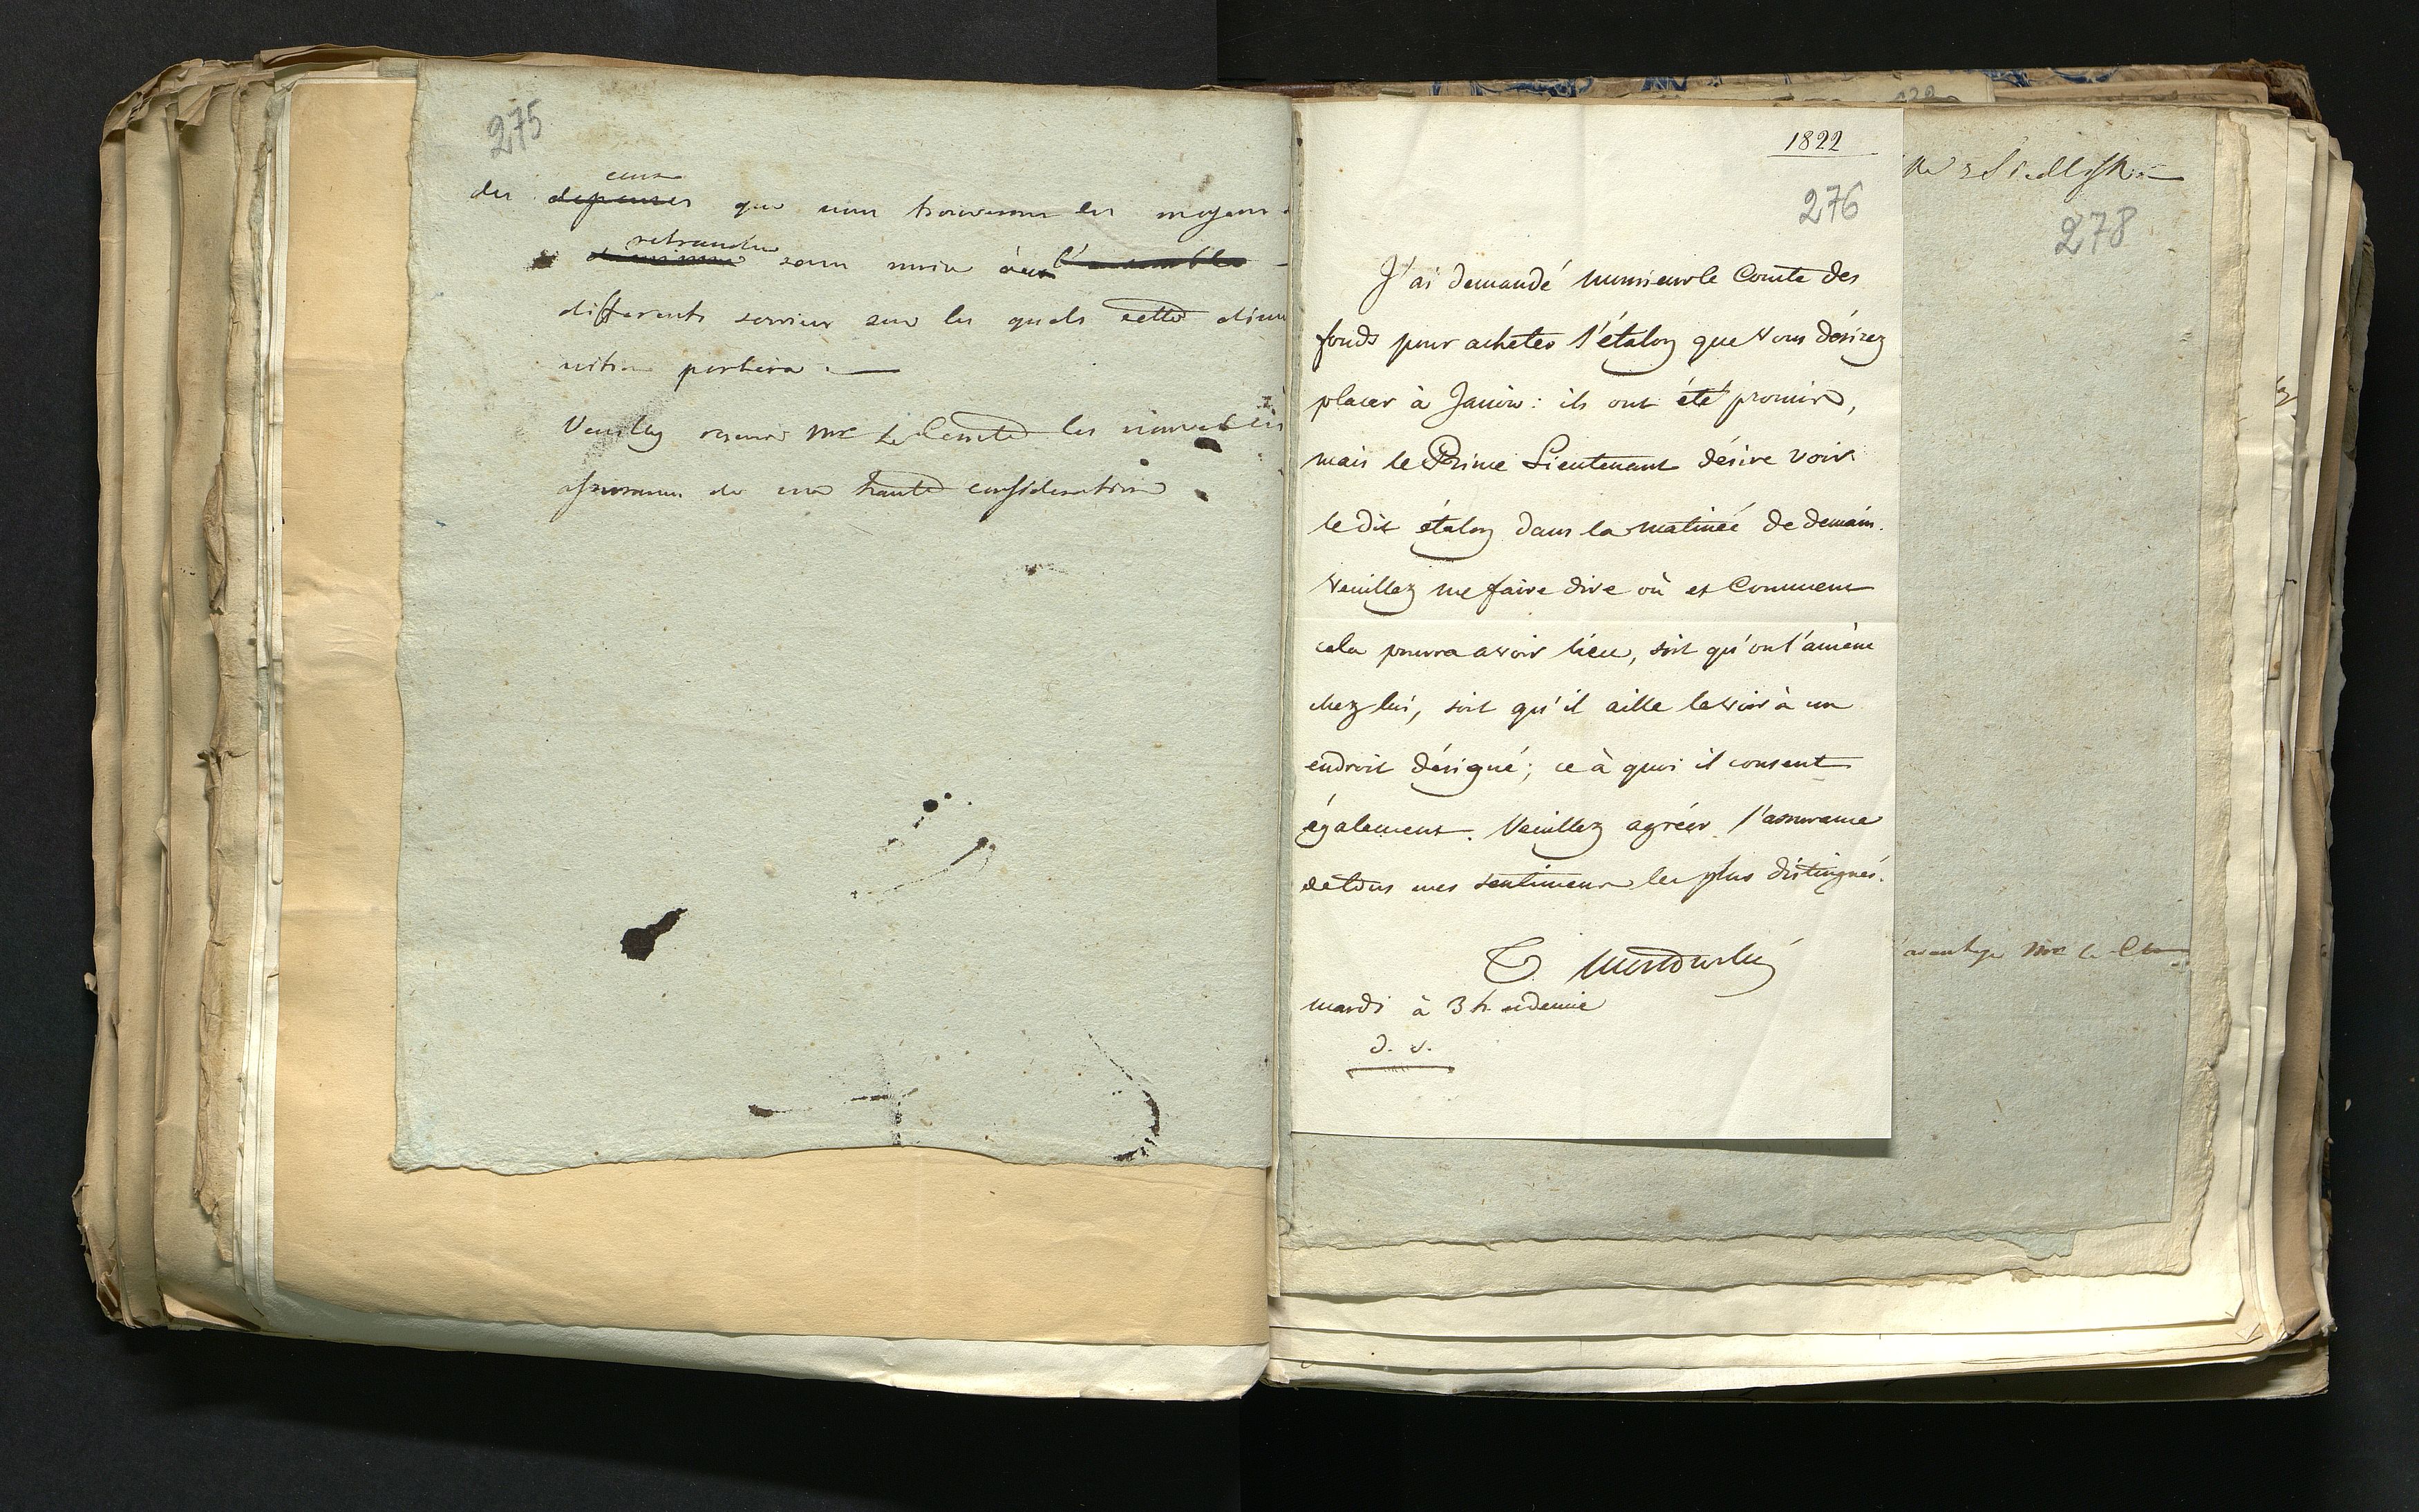 275
ceux
des depenses que nous trouverons les moyens
retrancher
sans nuire aux l'ensemble
differents services sur les quels cette dimi
nution portera. —
Veuillez recevoir Mr le Comte les nouvelles
assurances de ma haute consideration
1822
276
J'ai demandé monsieur le Comte des
fonds pour acheter l'étalon que vous désirez
placer à Janów: ils ont été promis,
mais le Prince Lieutenant désire voir
le dit étalon dans la matinée de demain.
Veuillez me faire dire où et Comment
cela pourra avoir lieu, soit qu'on l'amène
chez lui, soit qu'il aille le voir à un
endroit désigné; ce à quoi il consent
également. Veuillez agréer l'assurance
de tous mes sentimens les plus distingués.
T. Mostowski
mardi à 3 h. et demie
d. s.
278
avantage Mr le Cte